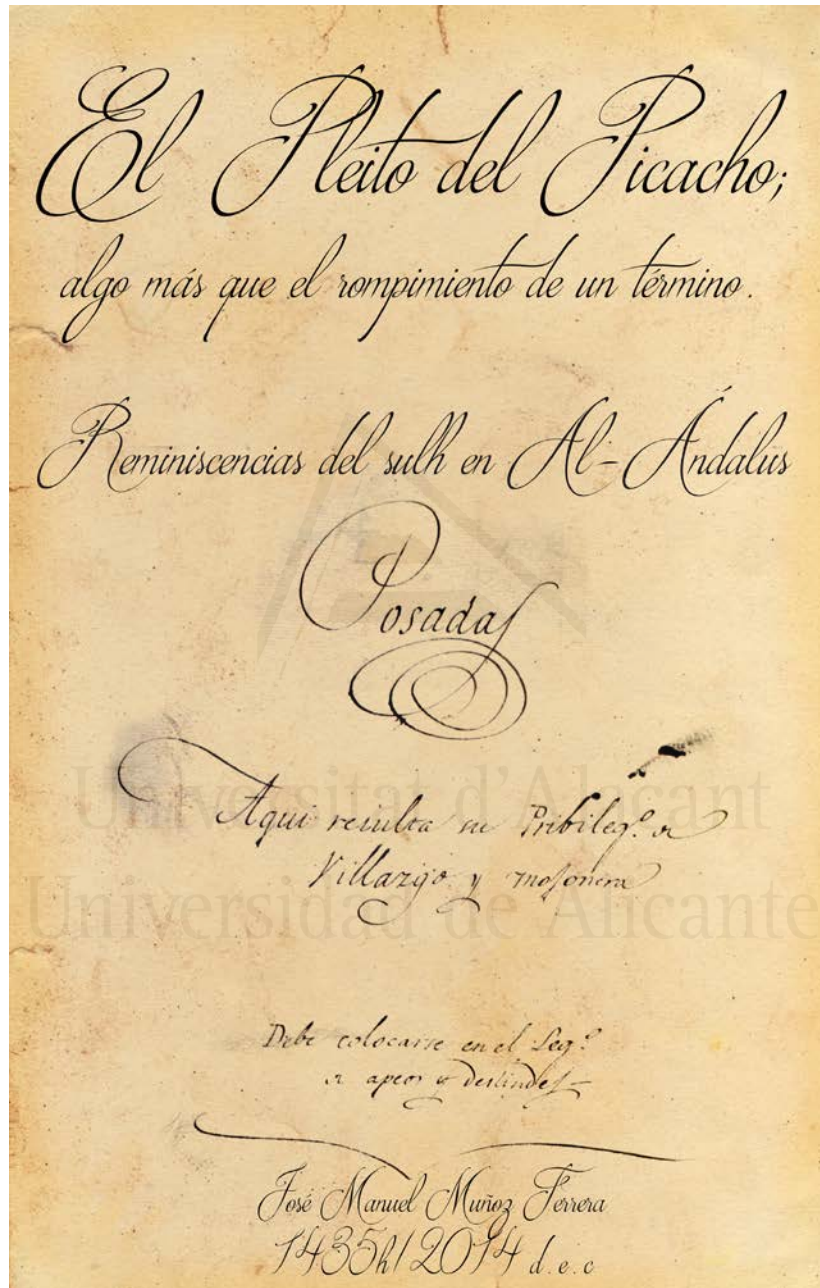 El Pleito del Picacho;
algo más que el rompimiento de un término.
Reminiscencias del sulh en Al-Ándalus
Posadas
Universitat d'Alacant
Aqui resulta su Pribileg.º de
Villazgo y mojonera
Universidad de Alicante
Debe colocarse en el Leg.º
de apeos y deslindes
José Manuel Muñoz Ferrera
1435h/2014 d.e.c